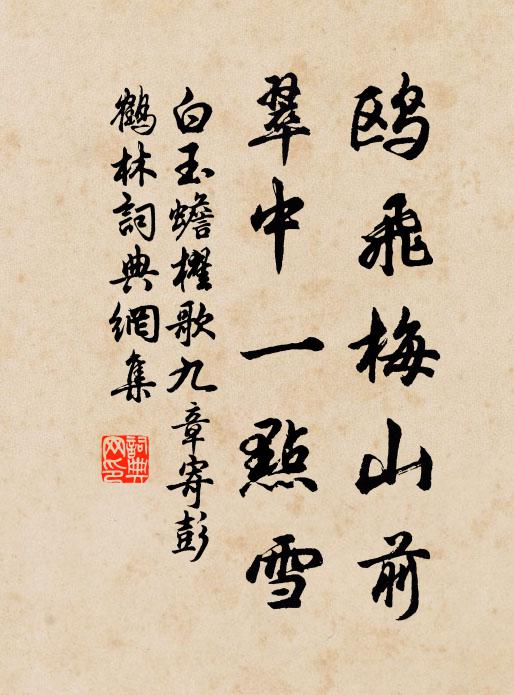 鸥飛梅山前
翠中一點雪
白玉蟾櫂歌九章寄彭
鶴林詞典網集
詞典
网印